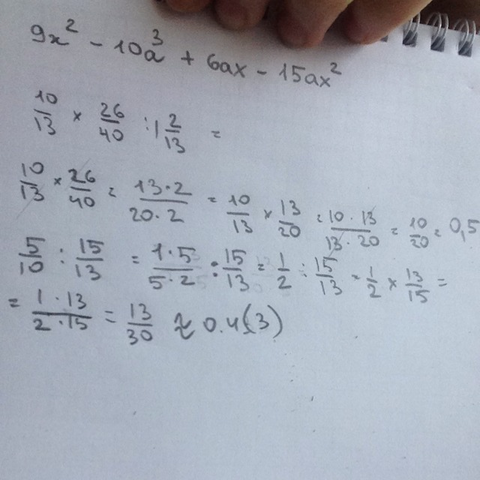 9x² - 10a³ + 6ax - 15ax²
10/13 × 26/40 : 1 2/13 =
10/13 × 26/40 = 13·2/20·2 = 10/13 × 13/20 = 10·13/13·20 = 10/20 = 0,5
5/10 : 15/13 = 1·5/5·2 : 15/13 = 1/2 : 15/13 = 1/2 × 13/15 =
= 1·13/2·15 = 13/30 ≈ 0.4(3)